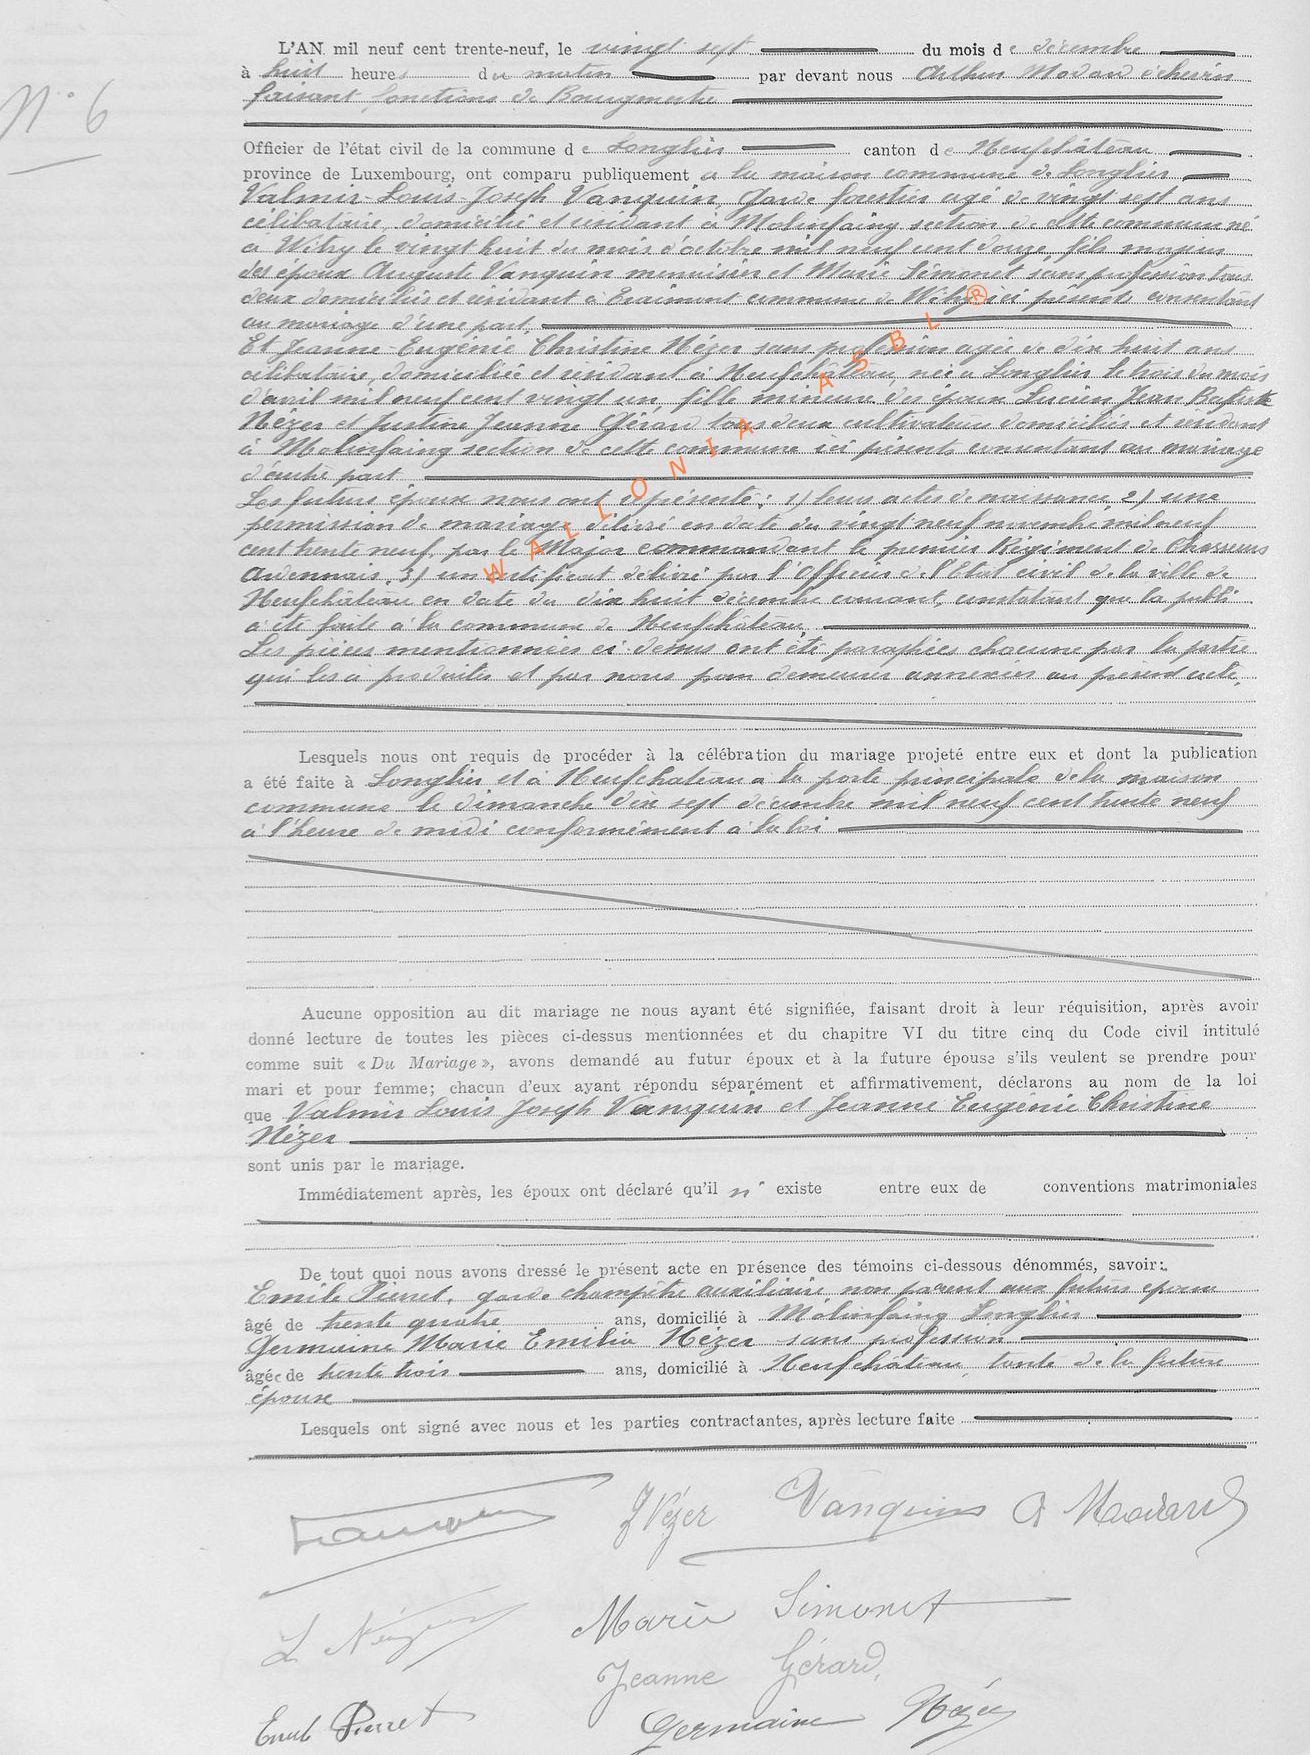 N° 6
L'AN mil neuf cent trente-neuf, le vingt sept du mois de décembre
à huit heures du matin par devant nous Arthur Modard échevin
faisant fonctions de Bourgmestre
Officier de l'état civil de la commune de Longlier canton de Neufchâteau
province de Luxembourg, ont comparu publiquement à la maison commune de Longlier
Valmir-Louis-Joseph Vanquin, Garde forestier agé de vingt sept ans
célibataire, domicilié et résidant à Molinfaing section de cette commune né
à Witry le vingt huit du mois d'octobre mil neuf cent douze, fils majeur
des époux Auguste Vanquin menuisier et Marie Simonet sans profession tous
deux domiciliés et résidant à Traimont commune de Witry ici présents consentant
au mariage d'une part,
Et Jeanne-Eugénie Christine Nézer sans profession agée de dix huit ans
célibataire, domiciliée et résidant à Neufchâteau, née à Longlier le trois du mois
d'avril mil neuf cent vingt un, fille mineure des époux Lucien Jean Baptiste
Nézer et Justine Jeanne Gérard tous deux cultivateurs domiciliés et résidant
à Molinfaing section de cette commune ici présents consentant au mariage
d'autre part
Les futurs époux nous ont représenté : 1) leurs actes de naissance, 2) une
permission de mariage délivré en date du vingt neuf novembre mil neuf
cent trente neuf, par le Major commandant le premier Régiment de Chasseurs
Ardennais, 3) un certificat délivré par l'Officier de l'Etat civil de la ville de
Neufchâteau en date du dix huit décembre courant, constatant que la publi
a été faite à la commune de Neufchâteau
Les pièces mentionnées ci-dessus ont été paraphées chacune par la partie
qui les a produites et par nous pour demeurer annexées au présent acte.
WALLONIA ASBL ®
Lesquels nous ont requis de procéder à la célébration du mariage projeté entre eux et dont la publication
a été faite à Longlier et à Neufchateau à la porte principale de la maison
commune le dimanche dix sept décembre mil neuf cent trente neuf
à l'heure de midi conformément à la loi
Aucune opposition au dit mariage ne nous ayant été signifiée, faisant droit à leur réquisition, après avoir
donné lecture de toutes les pièces ci-dessus mentionnées et du chapitre VI du titre cinq du Code civil intitulé
comme suit « Du Mariage », avons demandé au futur époux et à la future épouse s'ils veulent se prendre pour
mari et pour femme; chacun d'eux ayant répondu séparément et affirmativement, déclarons au nom de la loi
que Valmir Louis Joseph Vanquin et Jeanne Eugénie Christine
Nézer
sont unis par le mariage.
Immédiatement après, les époux ont déclaré qu'il n' existe entre eux de conventions matrimoniales
De tout quoi nous avons dressé le présent acte en présence des témoins ci-dessous dénommés, savoir:
Emile Pierret, garde champêtre auxiliaire non parent aux futurs époux
âgé de trente quatre ans, domicilié à Molinfaing Longlier
Germaine Marie Emilia Nézer sans profession
âgée de trente trois ans, domicilié à Neufchâteau, tante de la future
épouse
Lesquels ont signé avec nous et les parties contractantes, après lecture faite
Vanquin J Nézer Vanquin A Modard
L Nézer Marie Simonet
Jeanne Gérard,
Emile Pierret Germaine Nézer